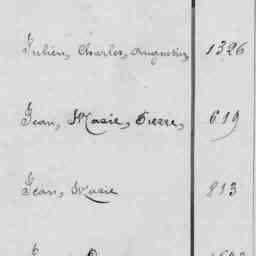 Julien, Charles, Augustin, 1326
Jean, Marie, Pierre, 619
Jean, Marie 813